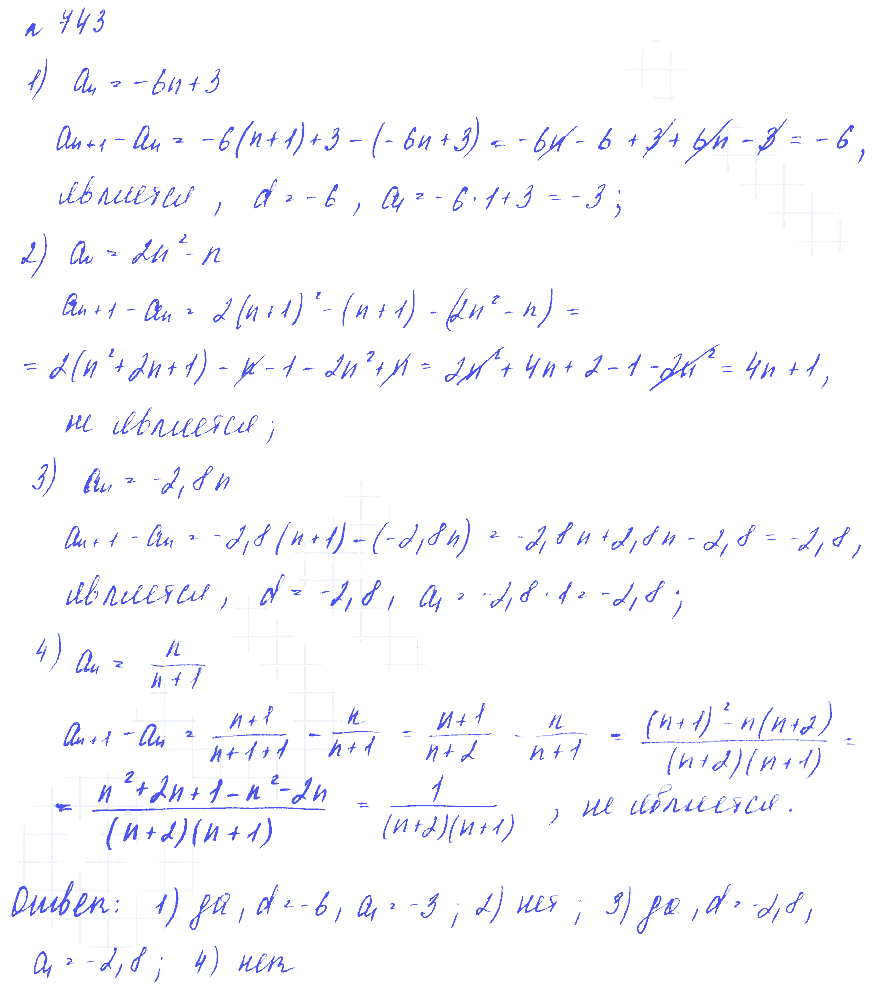 n 743
1) aₙ = -6n+3
aₙ₊₁ - aₙ = -6(n+1)+3-(-6n+3) = -6n - 6 + 3 + 6n - 3 = -6,
является, d = -6, a₁ = -6·1+3 = -3;
2) aₙ = 2n² - n
aₙ₊₁ - aₙ = 2(n+1)² - (n+1) - (2n² - n) =
= 2(n²+2n+1) - n - 1 - 2n² + n = 2n² + 4n + 2 - 1 - 2n² = 4n + 1,
не является;
3) aₙ = -2,8n
aₙ₊₁ - aₙ = -2,8(n+1) - (-2,8n) = -2,8n + 2,8n - 2,8 = -2,8,
является, d = -2,8, a₁ = -2,8·1 = -2,8;
4) aₙ = n/(n+1)
aₙ₊₁ - aₙ = (n+1)/(n+1+1) - n/(n+1) = (n+1)/(n+2) - n/(n+1) = ((n+1)² - n(n+2))/((n+2)(n+1)) =
= (n²+2n+1-n²-2n)/((n+2)(n+1)) = 1/((n+2)(n+1)), не является.
Ответ: 1) да, d = -6, a₁ = -3; 2) нет; 3) да, d = -2,8,
a₁ = -2,8; 4) нет